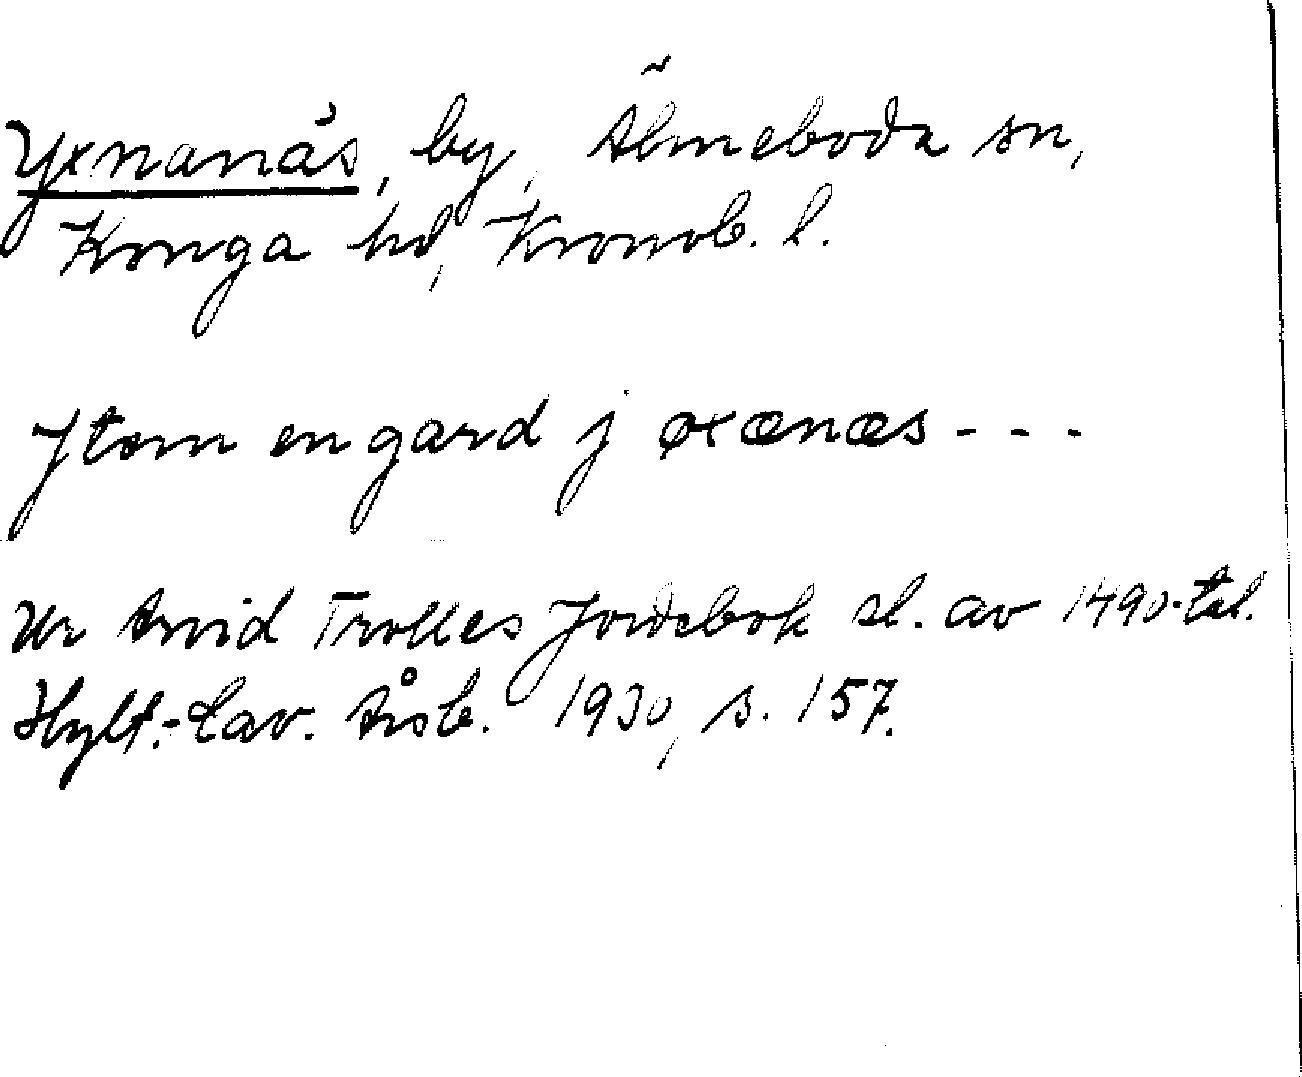 Yxnanäs, by, Älmeboda sn,
Konga hd, Kronob. l.
Jtem en gard j øxænæs - - -
Ur Arvid Trolles Jordebok sl. av 1490-tal.
Hylt.-Cav. Årsb. 1930, s. 157.